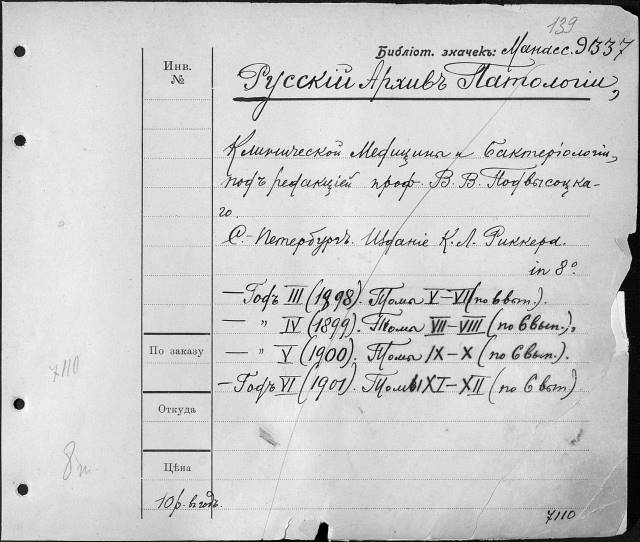 139
Библіот. значекъ: Манасс. 91337
Инв.
№
Русскій Архивъ Патологіи,
Клинической Медицины и Бактеріологіи,
подъ редакціей проф. В. В. Подвысоцка-
го.
С.-Петербургъ. Изданіе К. Л. Риккера.
in 8°
— Годъ III (1898). Томы V–VI (по 6 вып.).
— " IV (1899). Томы VII–VIII (по 6 вып.).
По заказу
— " V (1900). Томы IX–X (по 6 вып.).
7110
— Годъ VI (1901). Томы XI–XII (по 6 вып.)
Откуда
8 т.
Цѣна
10 р. въ годъ.
7110